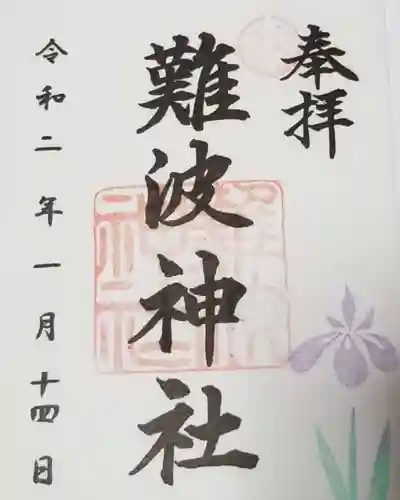 奉拝
難波神社
令和二年一月十四日